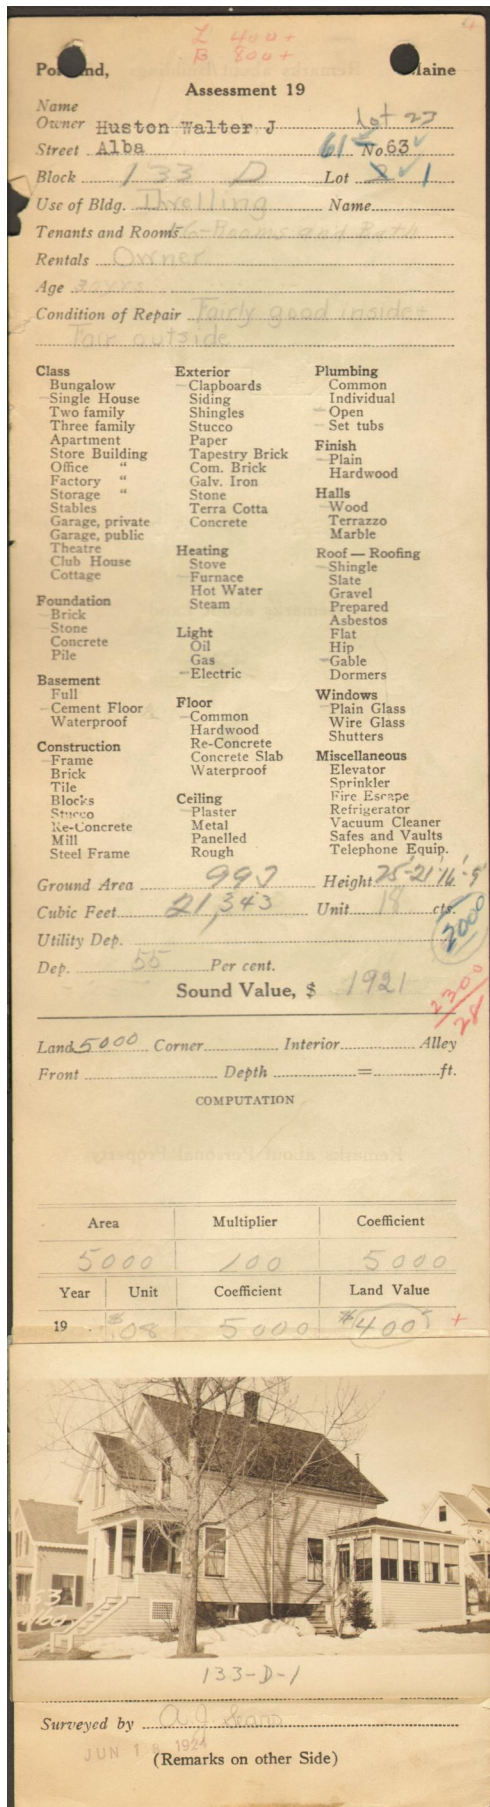 L 400+
B 800+
4
Portland, Maine
Assessment 19
Name
Lot 23
Owner Huston Walter J
Street Alba 61 No. 63
Block 133 D Lot 1
Use of Bldg. Dwelling Name
Tenants and Rooms 1-6-Rooms and Bath
Rentals Owner
Age 30 yrs
Condition of Repair Fairly good inside +
Fair outside
Class
Bungalow
Single House
Two family
Three family
Apartment
Store Building
Office "
Factory "
Storage "
Stables
Garage, private
Garage, public
Theatre
Club House
Cottage
Foundation
Brick
Stone
Concrete
Pile
Basement
Full
Cement Floor
Waterproof
Construction
Frame
Brick
Tile
Blocks
Stucco
Re-Concrete
Mill
Steel Frame
Exterior
Clapboards
Siding
Shingles
Stucco
Paper
Tapestry Brick
Com. Brick
Galv. Iron
Stone
Terra Cotta
Concrete
Heating
Stove
Furnace
Hot Water
Steam
Light
Oil
Gas
Electric
Floor
Common
Hardwood
Re-Concrete
Concrete Slab
Waterproof
Ceiling
Plaster
Metal
Panelled
Rough
Plumbing
Common
Individual
Open
Set tubs
Finish
Plain
Hardwood
Halls
Wood
Terrazzo
Marble
Roof — Roofing
Shingle
Slate
Gravel
Prepared
Asbestos
Flat
Hip
Gable
Dormers
Windows
Plain Glass
Wire Glass
Shutters
Miscellaneous
Elevator
Sprinkler
Fire Escape
Refrigerator
Vacuum Cleaner
Safes and Vaults
Telephone Equip.
Ground Area 997 Height 25'-21'-16'-9'
Cubic Feet 21,343 Unit 18 cts.
2000
Utility Dep.
Dep. 55 Per cent.
Sound Value, $ 1921
2300
28
Land 5000 Corner Interior Alley
Front Depth = ft.
COMPUTATION
Area Multiplier Coefficient
5000 100 5000
Year Unit Coefficient Land Value
19 $.08 5000 $400 +
133-D-1
Surveyed by A.J. Sears
JUN 18 1924
(Remarks on other Side)